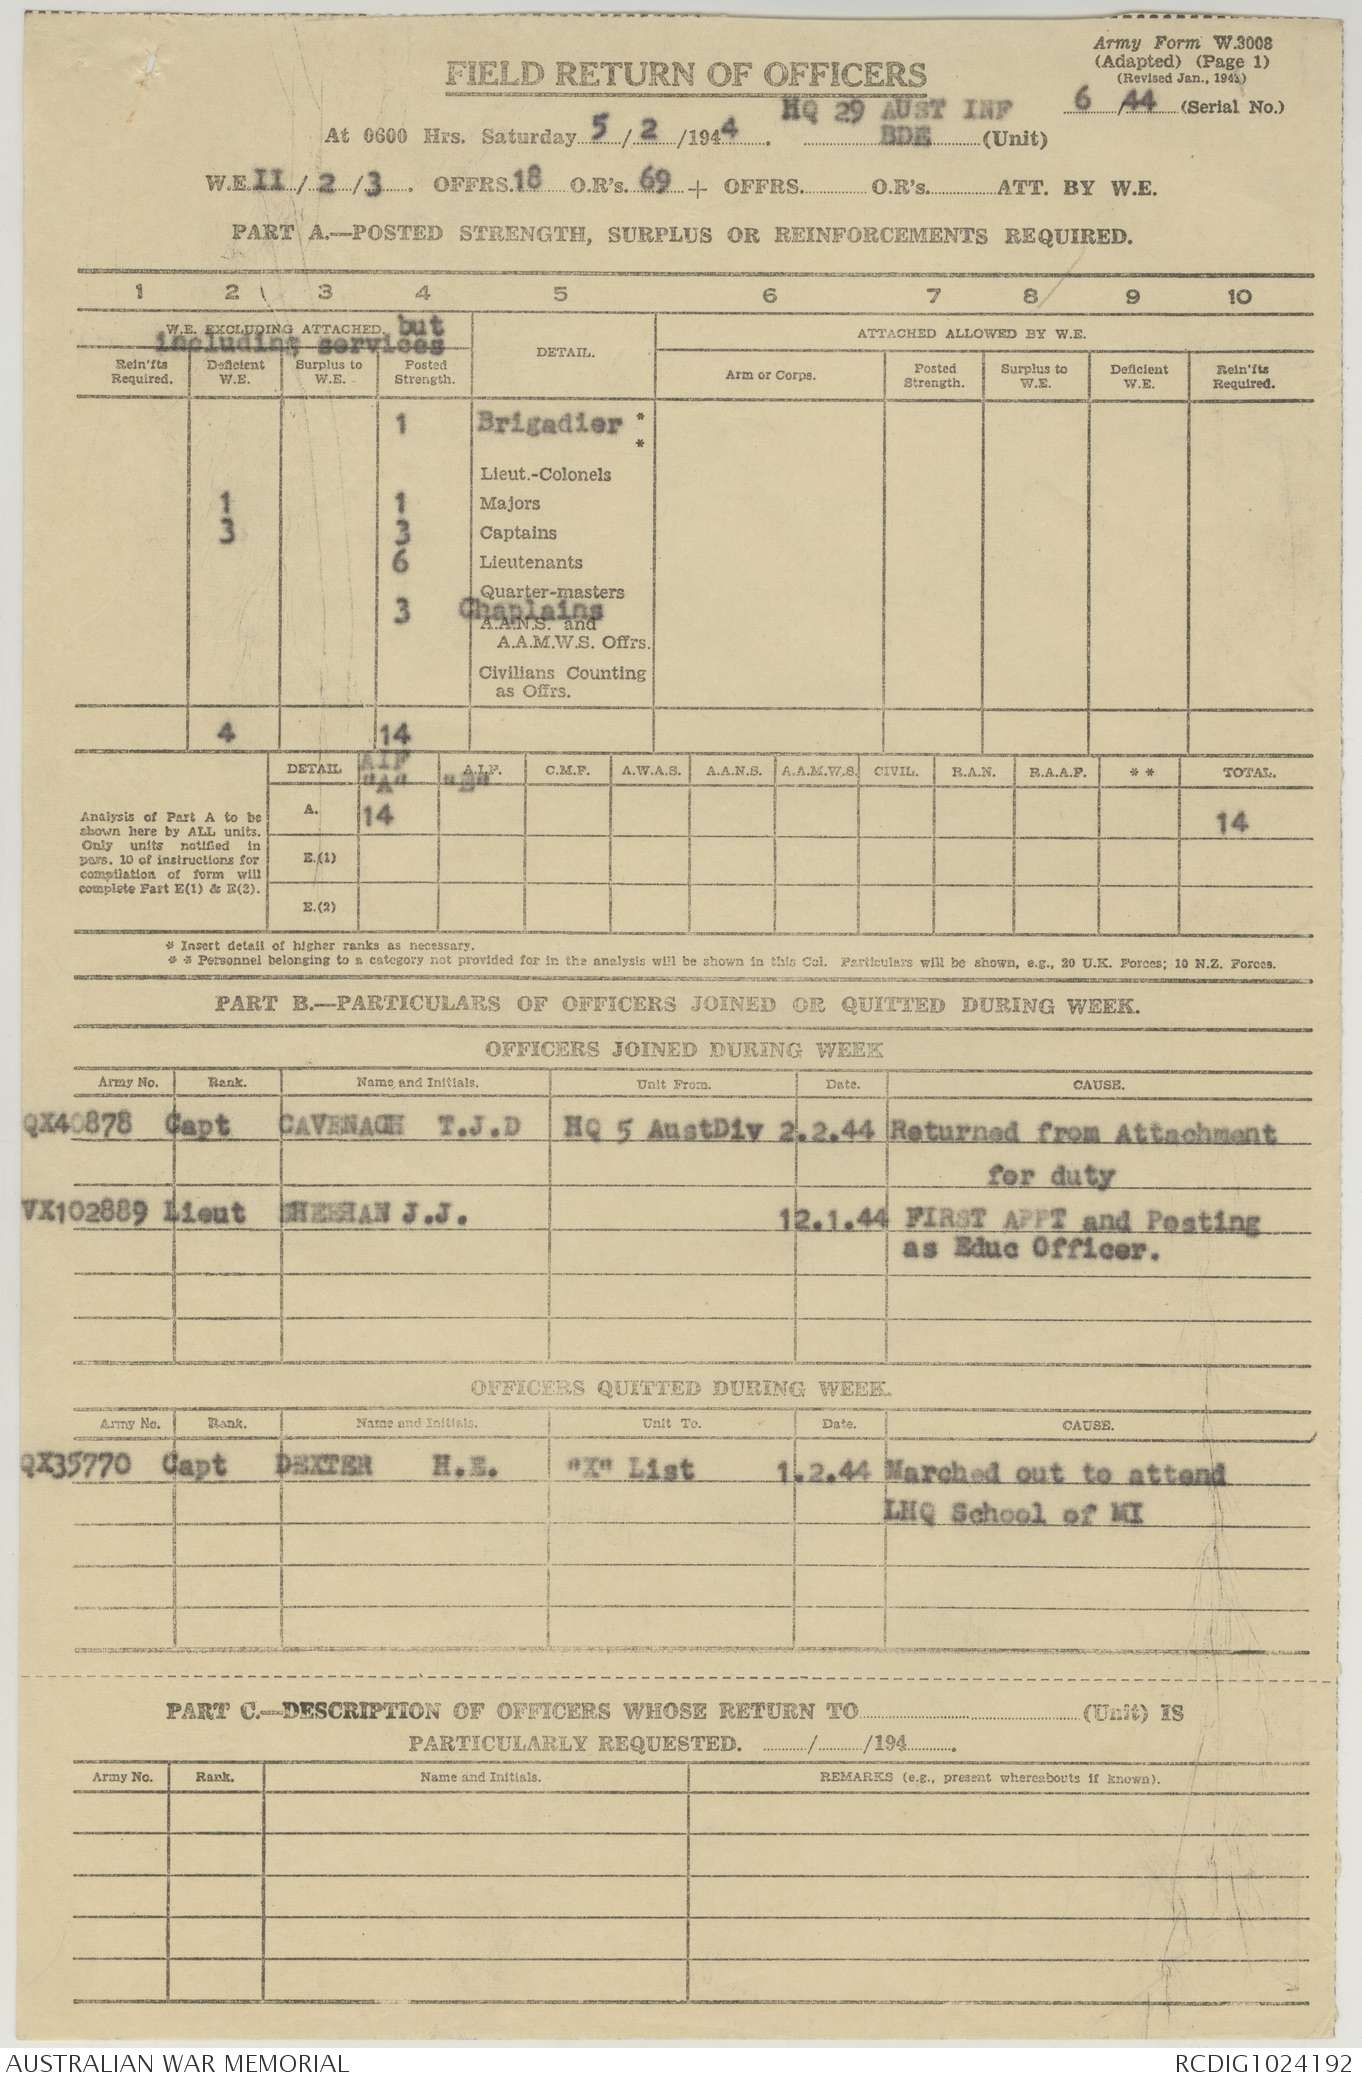 Army Form W.3008
(Adapted) (Page 1)
(Revised Jan., 194 )
FIELD RETURN OF OFFICERS
6/44 (Serial No.)
HQ 29 AUST INF
At 0600 Hrs. Saturday 5/2/1944. BDE (Unit)
W.E. II/2/3. OFFRS. 18 O.R's. 69 + OFFRS. O.R's. ATT. BY W.E.
PART A.—POSTED STRENGTH, SURPLUS OR REINFORCEMENTS REQUIRED.
1 2 3 4 5 6 7 8 9 10
W.E. EXCLUDING ATTACHED, but
including services
DETAIL.
ATTACHED ALLOWED BY W.E.
Rein'fts Required. Deficient W.E. Surplus to W.E. Posted Strength.
Arm or Corps. Posted Strength. Surplus to W.E. Deficient W.E. Rein'fts Required.
1 Brigadier *
*
Lieut.-Colonels
1 1 Majors
3 3 Captains
6 Lieutenants
Quarter-masters
3 Chaplains
A.A.N.S. and
A.A.M.W.S. Offrs.
Civilians Counting
as Offrs.
4 14
DETAIL AIF "A" A.I.F. "B" C.M.F. A.W.A.S. A.A.N.S. A.A.M.W.S. CIVIL. R.A.N. R.A.A.F. * * TOTAL.
Analysis of Part A to be
shown here by ALL units.
Only units notified in
para. 10 of instructions for
compilation of form will
complete Part E(1) & E(2).
A. 14 14
E.(1)
E.(2)
* Insert detail of higher ranks as necessary.
* * Personnel belonging to a category not provided for in the analysis will be shown in this Col. Particulars will be shown, e.g., 20 U.K. Forces; 10 N.Z. Forces.
PART B.—PARTICULARS OF OFFICERS JOINED OR QUITTED DURING WEEK.
OFFICERS JOINED DURING WEEK
Army No. Rank. Name and Initials. Unit From. Date. CAUSE.
QX40878 Capt CAVENAGH T.J.D HQ 5 AustDiv 2.2.44 Returned from Attachment
for duty
VX102889 Lieut SHEEHAN J.J. 12.1.44 FIRST APPT and Posting
as Educ Officer.
OFFICERS QUITTED DURING WEEK.
Army No. Rank. Name and Initials. Unit To. Date. CAUSE.
QX35770 Capt DEXTER H.E. "X" List 1.2.44 Marched out to attend
LHQ School of MI
PART C.—DESCRIPTION OF OFFICERS WHOSE RETURN TO (Unit) IS
PARTICULARLY REQUESTED. / /194 .
Army No. Rank. Name and Initials. REMARKS (e.g., present whereabouts if known).
AUSTRALIAN WAR MEMORIAL RCDIG1024192